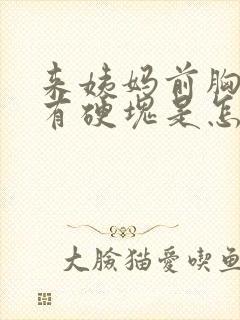 来姨妈前胸
有硬块是怎
大脸猫爱喫鱼